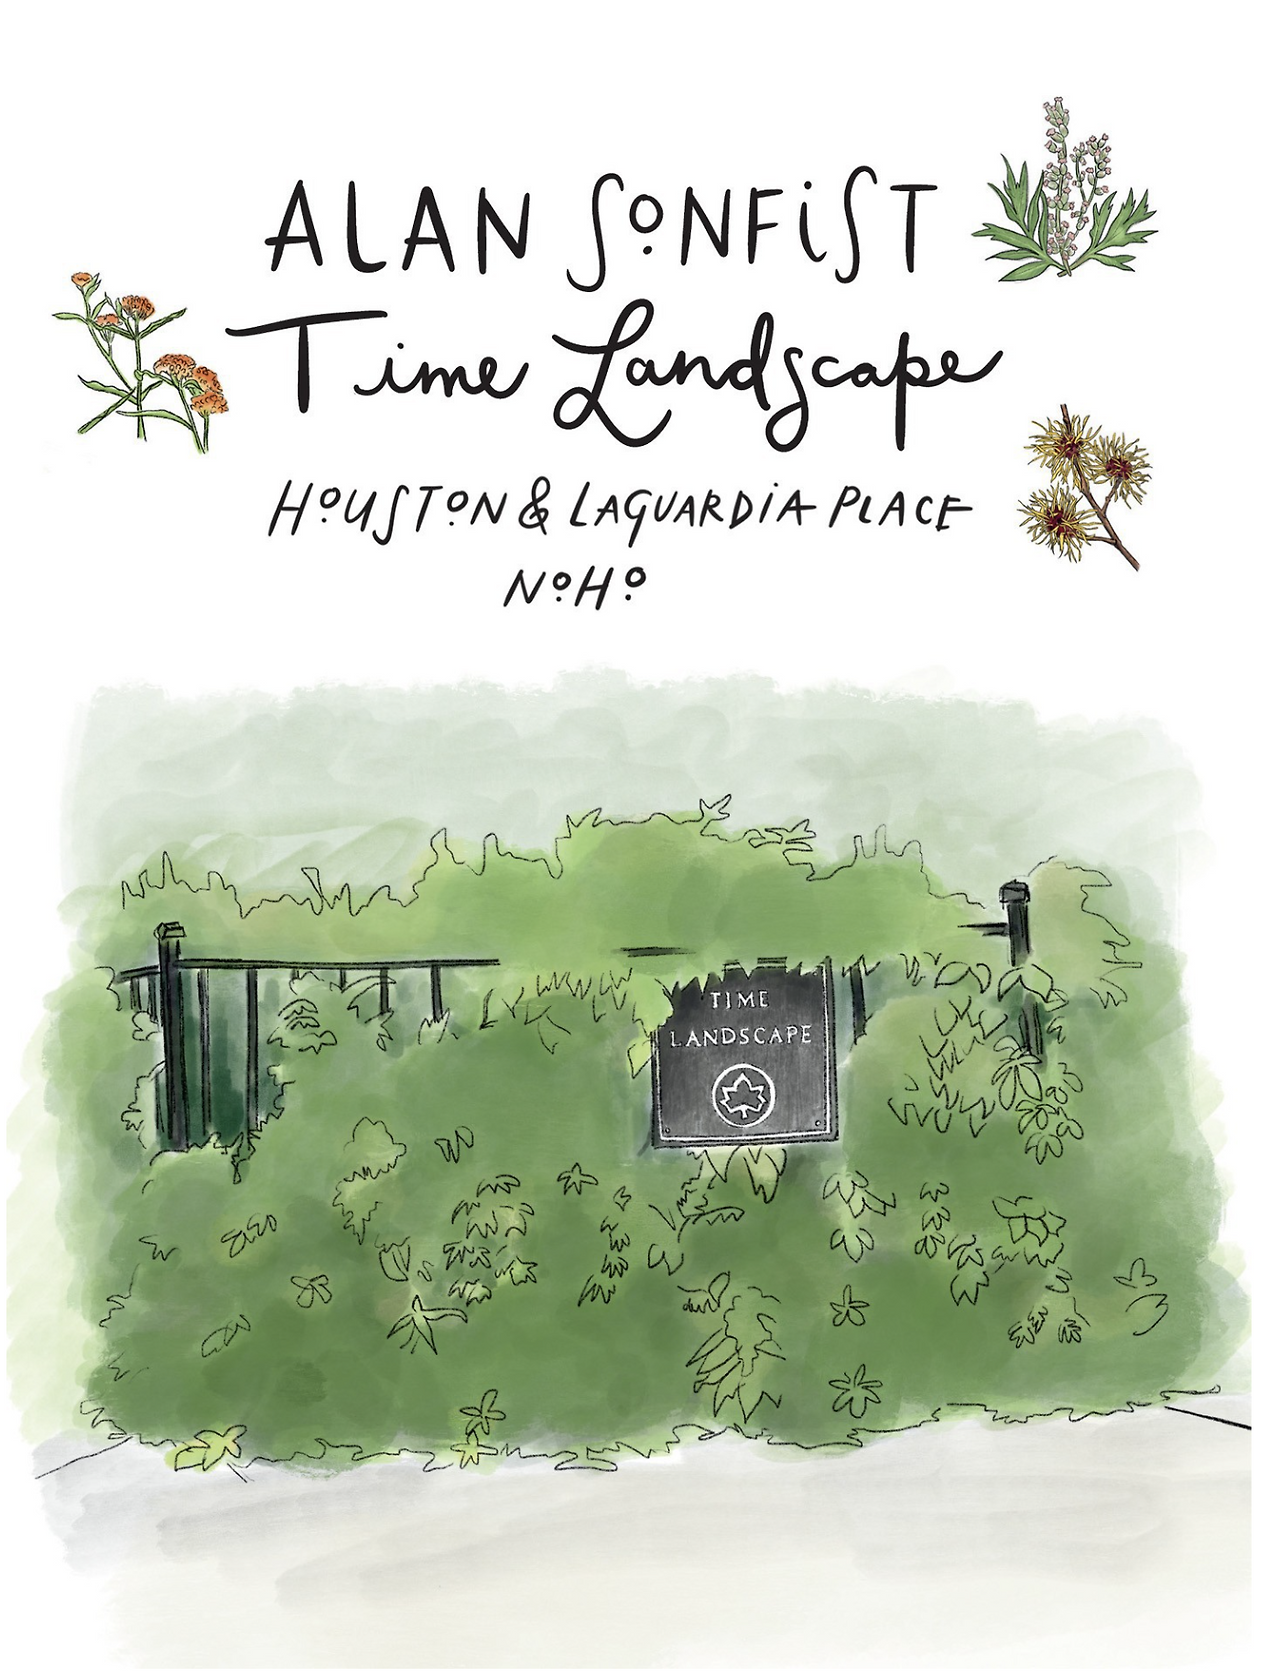 ALAN SONFiST
Time Landscape
HOUSTON & LAGUARDiA PLACE
NOHO
TIME
LANDSCAPE